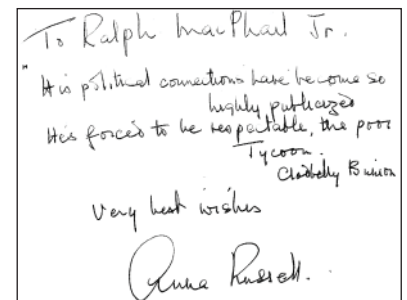 To Ralph MacPhail Jr.
"His political connections have become so
highly publicized
He's forced to be respectable, the poor
Tycoon.
Clodbelly Bunion
Very best wishes
Anna Russell.